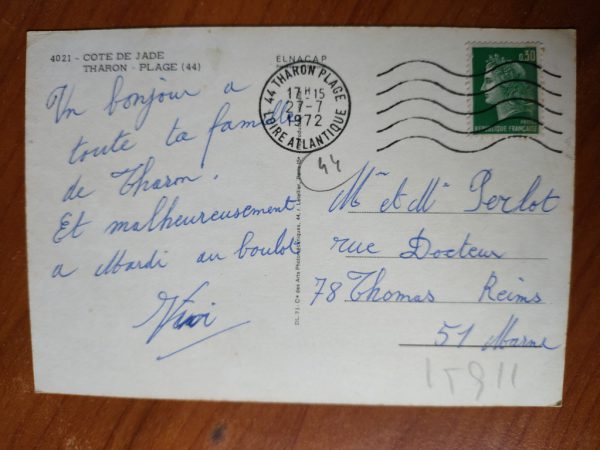 4021 - COTE DE JADE
THARON - PLAGE (44)
Un bonjour a
toute ta famille
de Tharon.
Et malheureusement
a Mardi au boulot
Vivi
ELNACAP
44 THARON PLAGE
17H15
27-7
1972
LOIRE ATLANTIQUE
44
0,30
REPUBLIQUE FRANÇAISE
Mme et Mr Perlot
rue Docteur
78 Thomas Reims
51 Marne